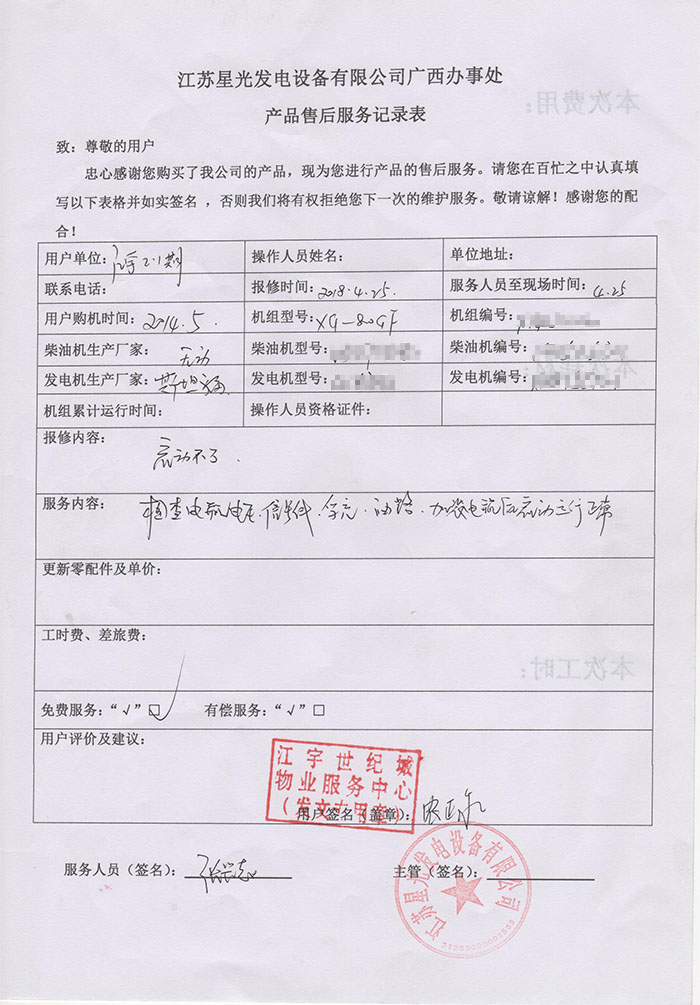 江苏星光发电设备有限公司广西办事处
产品售后服务记录表
致：尊敬的用户
忠心感谢您购买了我公司的产品，现为您进行产品的售后服务。请您在百忙之中认真填
写以下表格并如实签名 ，否则我们将有权拒绝您下一次的维护服务。敬请谅解！感谢您的配
合！
用户单位： 操作人员姓名： 单位地址：
联系电话： 报修时间：2018.4.25. 服务人员至现场时间：4.25
用户购机时间：2014.5. 机组型号：XG-80GF 机组编号：
柴油机生产厂家：无动 柴油机型号： 柴油机编号：
发电机生产厂家：斯坦福 发电机型号： 发电机编号：
机组累计运行时间： 操作人员资格证件：
报修内容：
启动不了.
服务内容：
检查电瓶电压.信号线.油路.加装电瓶后启动运行正常
更新零配件及单价：
工时费、差旅费：
免费服务：“√”□√ 有偿服务：“√”□
用户评价及建议：
江宇世纪城
物业服务中心
（发文专用章）
用户签名（盖章）：
服务人员（签名）： 主管（签名）：
江苏星光发电设备有限公司
本次费用：
本次工时：